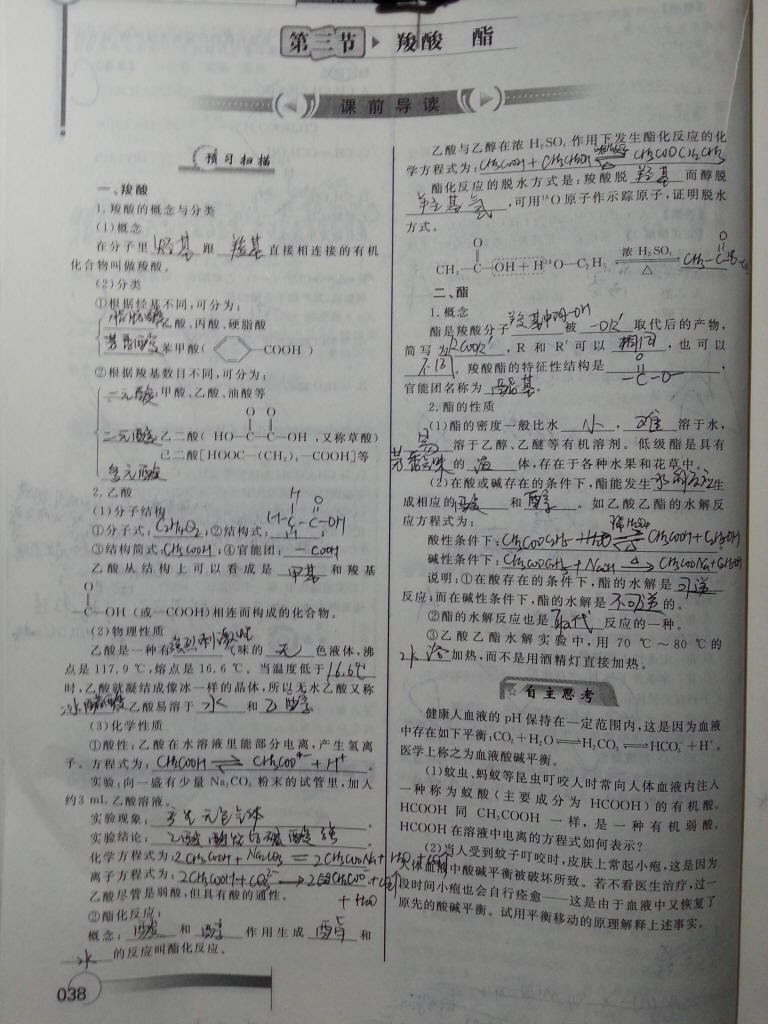 第三节 羧酸 酯
课前导读
预习扫描
一、羧酸
1.羧酸的概念与分类
(1)概念
在分子里 烃基 跟 羧基 直接相连接的有机
化合物叫做羧酸。
(2)分类
①根据烃基不同,可分为:
脂肪酸:乙酸、丙酸、硬脂酸
芳香酸:苯甲酸( COOH )
②根据羧基数目不同,可分为:
一元酸:甲酸、乙酸、油酸等
O O
二元酸 乙二酸( HO—C—C—OH ,又称草酸)
己二酸[HOOC—(CH₂)₄—COOH]等
多元酸
2.乙酸
(1)分子结构
H O
H-C-C-OH
①分子式:C₂H₄O₂;②结构式: H ;
③结构简式:CH₃COOH;④官能团: —COOH
乙酸从结构上可以看成是 甲基 和羧基
O
C—OH (或—COOH)相连而构成的化合物。
(2)物理性质
乙酸是一种有 强烈刺激性 气味的 无 色液体,沸
点是 117.9 ℃,熔点是 16.6 ℃。当温度低于 16.6℃
时,乙酸就凝结成像冰一样的晶体,所以无水乙酸又称
冰醋酸。乙酸易溶于 水 和 乙醇
(3)化学性质
①酸性:乙酸在水溶液里能部分电离,产生氢离
子。方程式为: CH₃COOH ⇌ CH₃COO⁻ + H⁺ 。
实验:向一盛有少量 Na₂CO₃ 粉末的试管里,加入
约3 mL 乙酸溶液。
实验现象: 产生无色气体 。
实验结论: 乙酸酸性比碳酸强 。
化学方程式为:2CH₃COOH + Na₂CO₃ = 2CH₃COONa + H₂O + CO₂↑
离子方程式为: 2CH₃COOH + CO₃²⁻ → 2CH₃COO⁻ + CO₂↑
+ H₂O
乙酸尽管是弱酸,但具有酸的通性。
②酯化反应:
概念: 酸 和 醇 作用生成 酯 和
水 的反应叫酯化反应。
038
乙酸与乙醇在浓 H₂SO₄ 作用下发生酯化反应的化
学方程式为: CH₃COOH + CH₃CH₂OH ⇌ CH₃COOCH₂CH₃
酯化反应的脱水方式是:羧酸脱 羟基 而醇脱
羟基氢 ,可用¹⁸O原子作示踪原子,证明脱水
方式。
O O
CH₃—C—OH+H¹⁸O—C₂H₅ 浓 H₂SO₄ △ CH₃-C-
二、酯
1.概念
酯是羧酸分子 羧基中的-OH 被 -OR' 取代后的产物,
简写为 RCOOR' , R 和 R′可以 相同 ,也可以
不同 。羧酸酯的特征性结构是 O -C-O- ,
官能团名称为 酯基。
2.酯的性质
(1)酯的密度一般比水 小 , 难 溶于水,
易 溶于乙醇、乙醚等有机溶剂。低级酯是具有
芳香气味 的 液 体,存在于各种水果和花草中。
(2)在酸或碱存在的条件下,酯能发生 水解反应 生
成相应的 酸 和 醇 。如乙酸乙酯的水解反
应方程式为:
酸性条件下: CH₃COOC₂H₅ + H₂O 稀H₂SO₄ ⇌ △ CH₃COOH + C₂H₅OH
碱性条件下: CH₃COOC₂H₅ + NaOH △→ CH₃COONa + C₂H₅OH
说明:①在酸存在的条件下,酯的水解是 可逆
反应;而在碱性条件下,酯的水解是 不可逆 的。
②酯的水解反应也是 取代 反应的一种。
③乙酸乙酯水解实验中,用 70 ℃~80 ℃的
水浴 加热,而不是用酒精灯直接加热。
自主思考
健康人血液的 pH 保持在一定范围内,这是因为血液
中存在如下平衡:CO₂+H₂O⇌H₂CO₃⇌HCO₃⁻+H⁺。
医学上称之为血液酸碱平衡。
(1)蚊虫、蚂蚁等昆虫叮咬人时常向人体血液内注入
一种称为蚁酸(主要成分为 HCOOH)的有机酸。
HCOOH 同 CH₃COOH 一样,是一种有机弱酸。
HCOOH 在溶液中电离的方程式如何表示?
(2)当人受到蚊子叮咬时,皮肤上常起小疱,这是因为
人体血液中酸碱平衡被破坏所致。若不看医生治疗,过一
段时间小疱也会自行痊愈——这是由于血液中又恢复了
原先的酸碱平衡。试用平衡移动的原理解释上述事实。